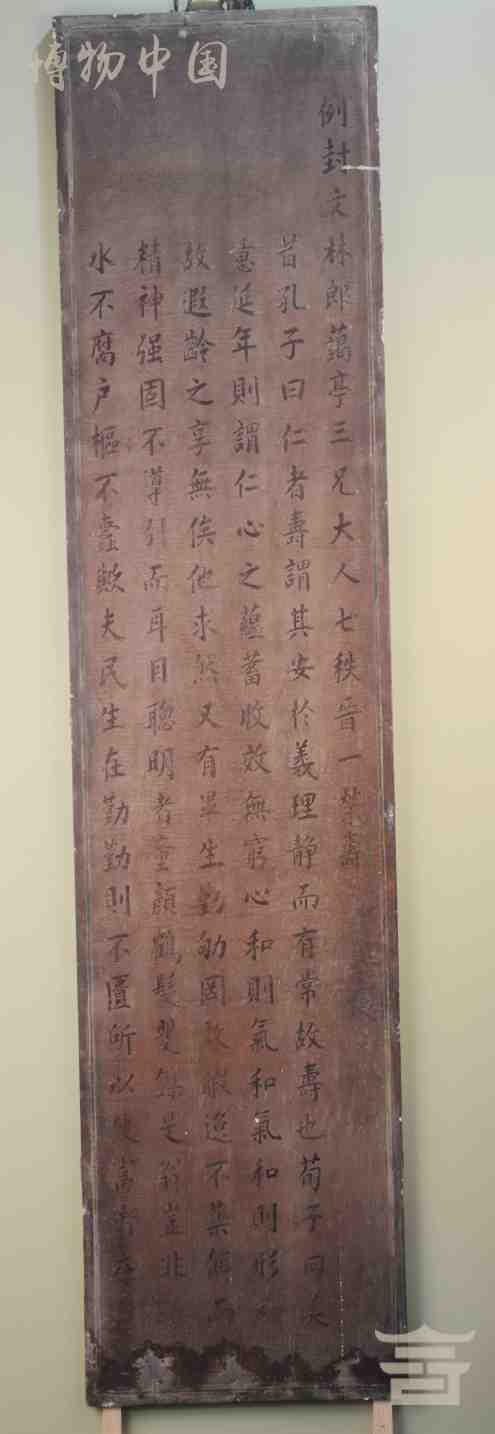 博物中国
例封文林郎藹亭三兄大人七秩晉一榮壽
昔孔子曰仁者壽謂其安於義理靜而有常故壽也荀子曰美
意延年則謂仁心之蘊蓄收效無窮心和則氣和氣和則形
故遐齡之享無俟他求然又有畢生勤劬罔敢暇逸不藥餌而
精神强固不導引而耳目聰明者童顏鶴髮矍鑠是翁豈非
水不腐户樞不蠹歟夫民生在勤勤則不匱所以使富者